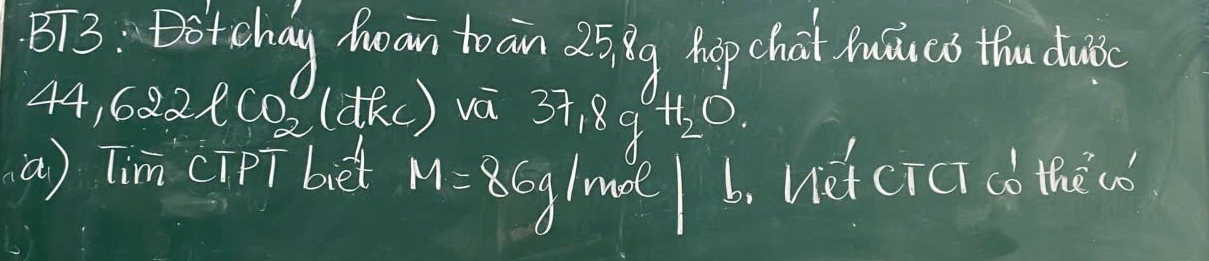 BT3: Đốt cháy hoàn toàn 25,8g hợp chất hữu cơ thu được
44,622l CO₂ (đkc) và 37,8g H₂O.
a) Tìm CTPT biết M = 86g/mol | b. Viết CTCT có thể có